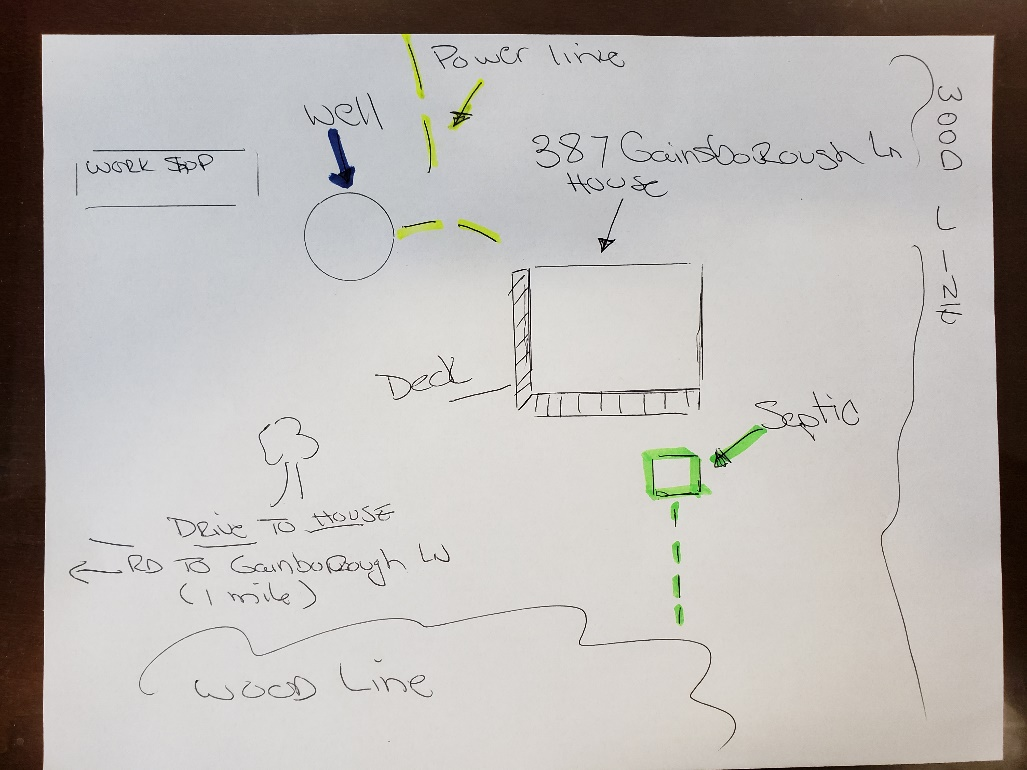 Power line
Well
WORK SHOP
387 Gainsborough Ln
HOUSE
WOOD LINE
Deck
Septic
DRIVE TO HOUSE
RD TO Gainborough LN
(1 mile)
WOOD Line